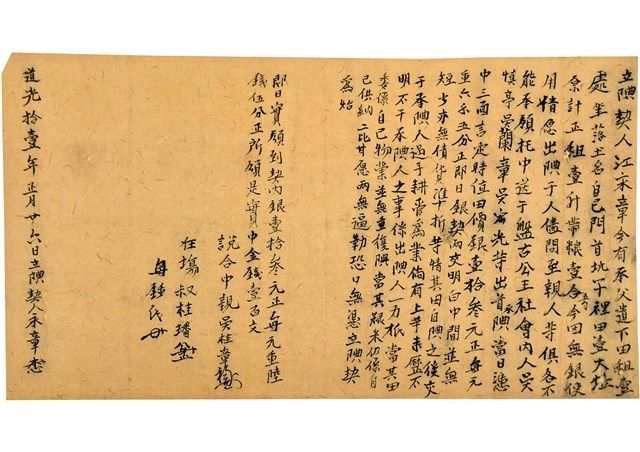 立阄契人江宋章今有承父遺下田租壹
處坐落土名自己門首坑下裡田壹大坵
原計正租壹 帶粮壹合今因無銀使
用情愿出阄于人儘問至親人等俱各不
能承領托中送于盤古公王社會內人吳
慎亭吳蘭章吳 光等出首承阄當日憑
中三面言定時值田價銀壹拾叁元正每元
重六 五分正即日銀契兩交明白中間並無
短少亦無債貨準折等情其田自阄之後交
于承阄人過手耕 為業倘有上手來歷不
明不干承阄人之事係出阄人一力抵當其田
委係自己物業並無重復 當其粮米仍係自
己供納二比甘愿兩無逼勒恐口無憑立阄契
為始
即日實領到契內銀壹拾叁元正每元重陸
錢伍分正所領是實中金錢壹百文
說合中親吳桂章
在塲叔桂璠
母鍾氏
道光拾壹年正月廿六日立阄契人宋章